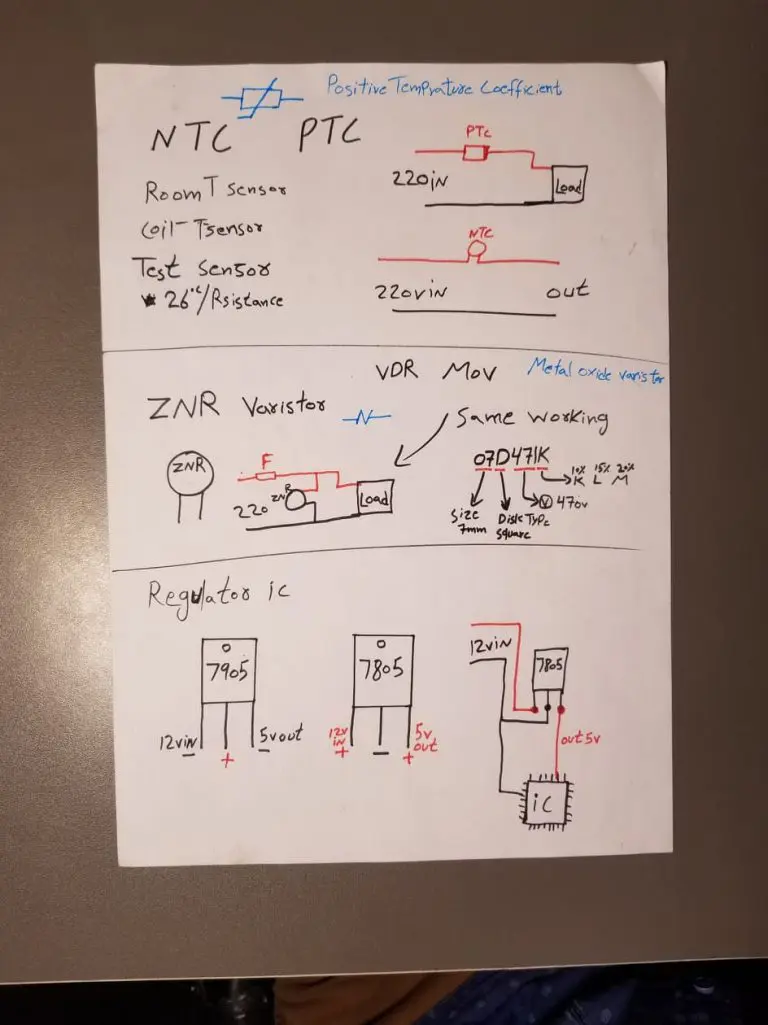 Positive Temprature Coefficient
NTC PTC
PTC
220iN
Load
Room T sensor
Coil-Tsensor
Test sensor
* 26°c/Rsistance
NTC
220vin out
VDR MOV Metal oxide varistor
ZNR Varistor
Same working
ZNR
F
ZNR
220
Load
07D471K
10% 15% 20%
K L M
V 470v
Size
7mm
Disk Type
square
Regulator ic
7905
12vin
+
5vout
-
7805
12v
iN
+
-
5v
out
+
12viN
7805
out 5v
iC